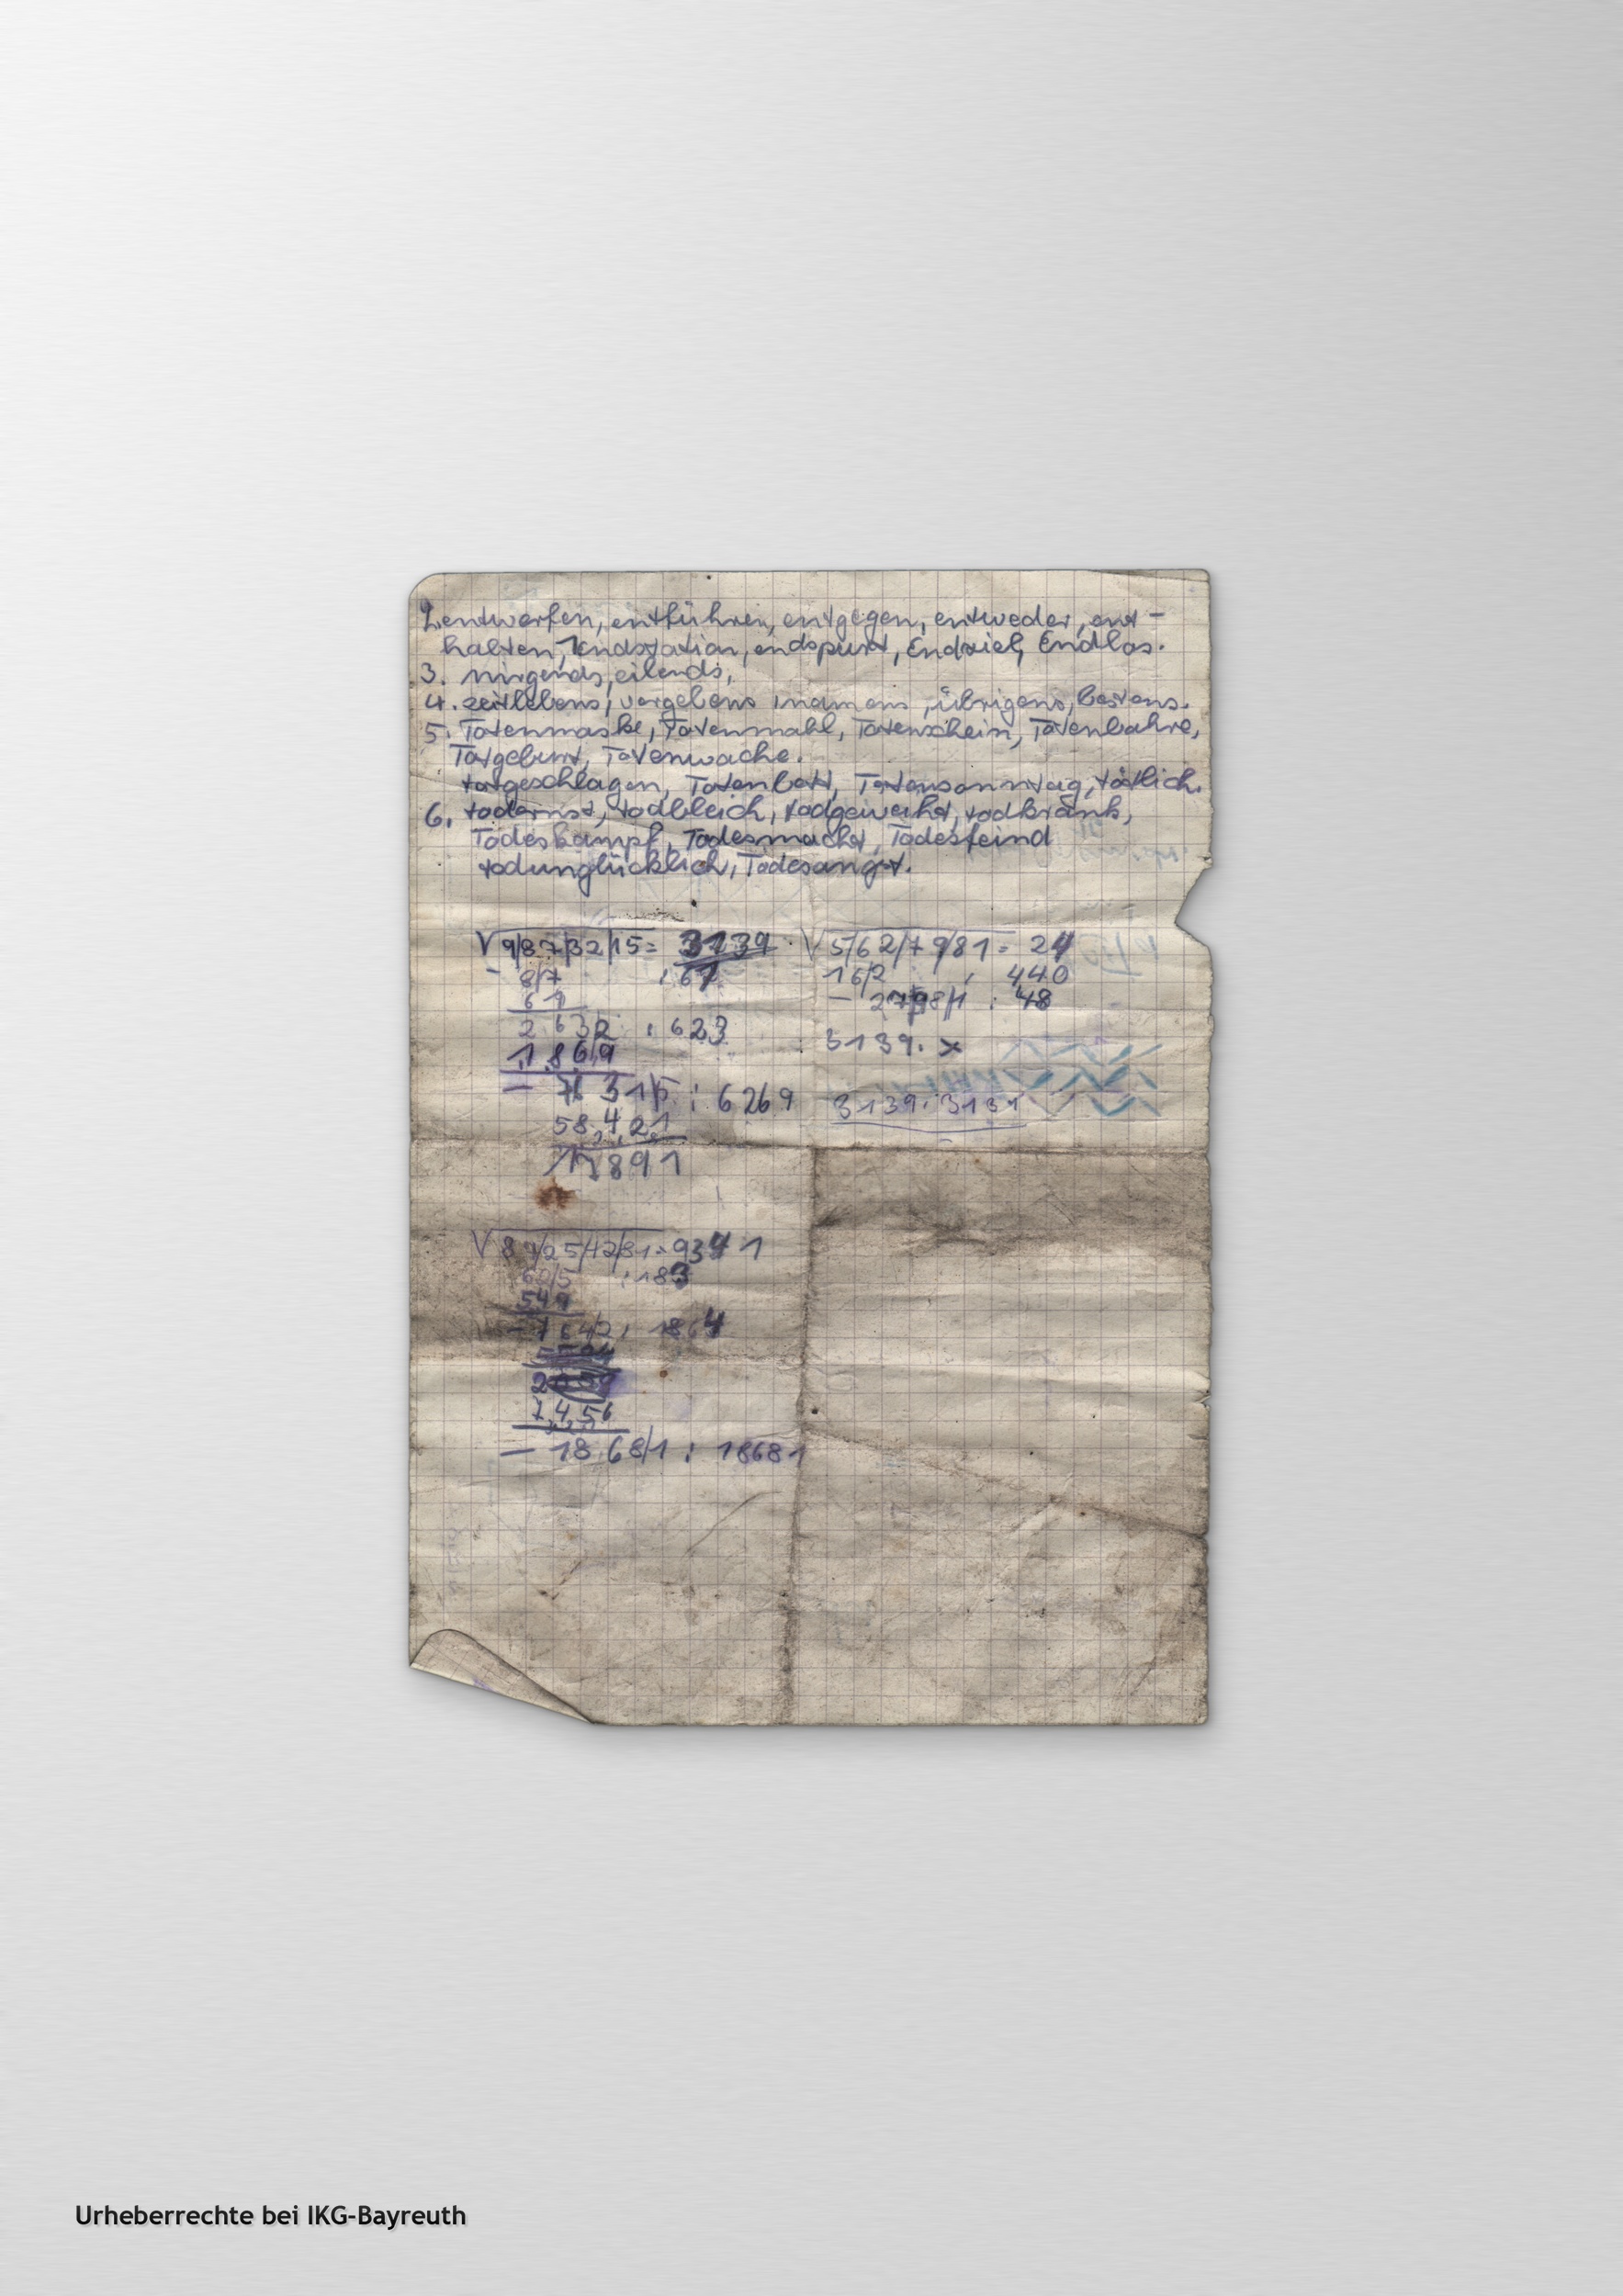 2. entwerfen, entführen, entgegen, entweder, ent-
halten, Endstation, endspurt, Endziel, Endlos.
3. nirgends, eilends,
4. zeitlebens, vergebens inamens, übrigens, bestens.
5. Totenmaske, Totenmahl, Totenschein, Totenbahre,
Totgeburt, Totenwache.
totgeschlagen, Totenbett, Totensonntag, tötlich.
6. todernst, todbleich, todgeweiht, todkrank,
Todeskampf, Todesmacht, Todesfeind
todunglücklich, Todesangst.
√9/87/32/15 = 3139
- 8/7 : 61
6 1
2 63/2 : 623
1 8 6 9
- 76 31/5 : 6269
58 4 21
17891
√5/62/79/81 = 24
16/2 : 440
- 279 8/1 : 48
3139. x
3139. 3131
√89/25/42/81 = 9341
/5 : 183
549
- 7 64/2 : 1864
7 4 56
- 18 68/1 : 18681
Urheberrechte bei IKG-Bayreuth